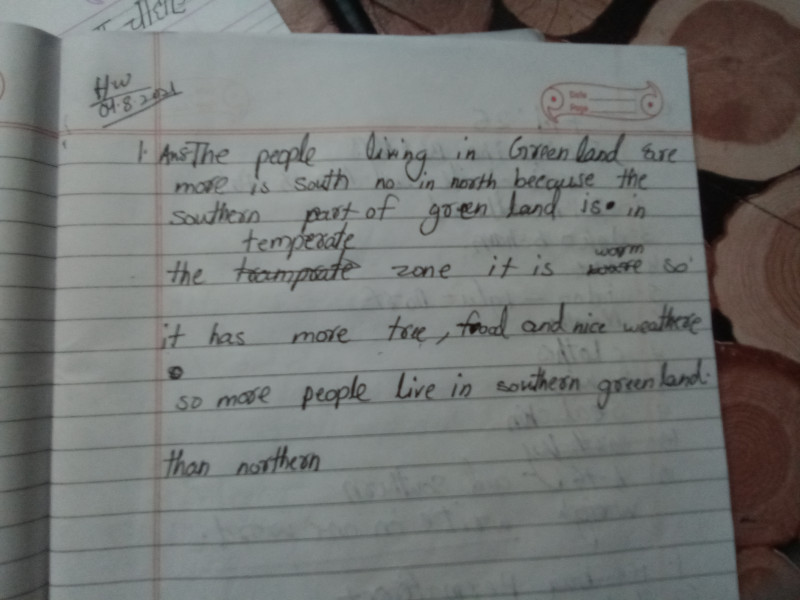 HW
04.8.2021
Date
Page
1. Ans The people living in Greenland are
more is south no in north because the
southern part of green land is in
temperate
the zone it is warm so
it has more tree, food and nice weathere
so more people live in southern greenland.
than northern